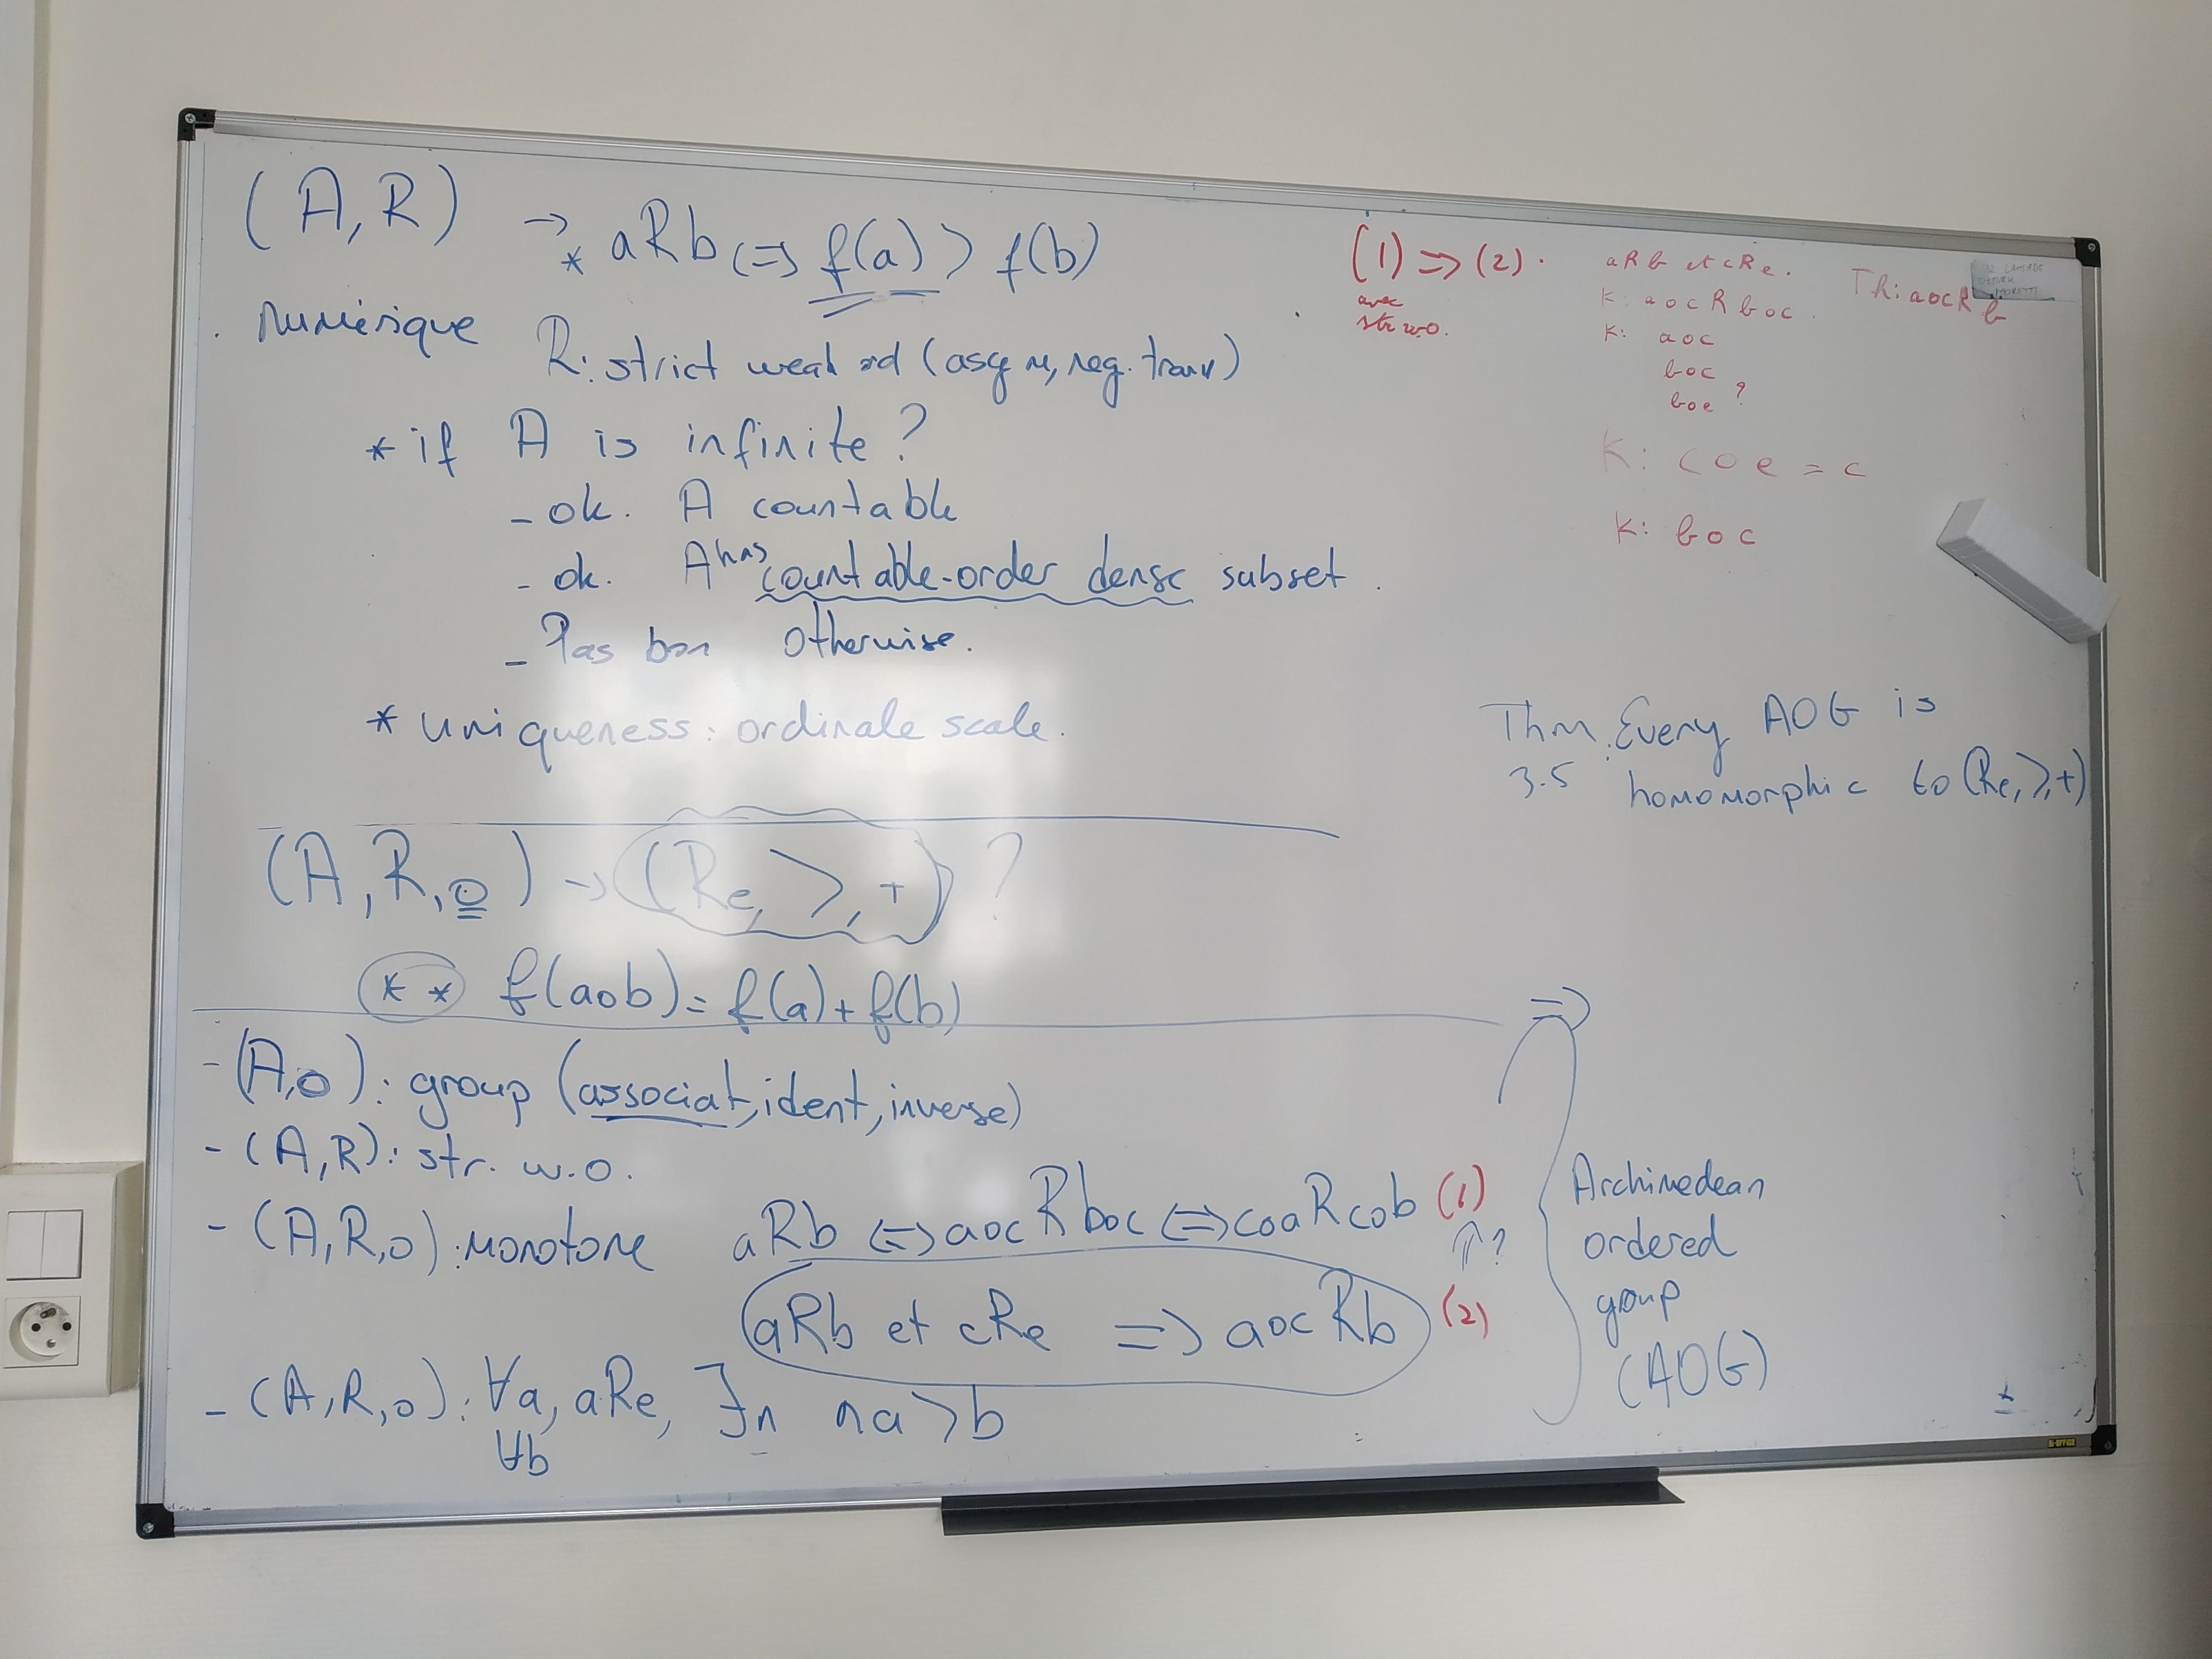 (A, R) → * aRb <=> f(a) > f(b)
numérique
R: strict weak ord (asym, neg. trans)
* if A is infinite?
- ok. A countable
- ok. A has countable-order dense subset.
- Pas bon otherwise.
* uniqueness: ordinale scale.
(A, R, o) → (Re, >, +) ?
** f(aob) = f(a) + f(b)
- (A, o): group (associat, ident, inverse)
- (A, R): str. w.o.
- (A, R, o): monotone aRb <=> aoc R boc <=> coa R cob (1)
⇑?
aRb et cRe => aoc R b (2)
- (A, R, o): ∀a, aRe, ∃n na > b
∀b
=>
Archimedean
ordered
group
(AOG)
(1) => (2).
avec
str w.o.
aRb et cRe.
K: aoc R boc.
K: aoc
boc
boe ?
K: coe = c
K: boc
Th: aocRb
Thm. Every AOG is
3.5 homomorphic to (Re, >, +)